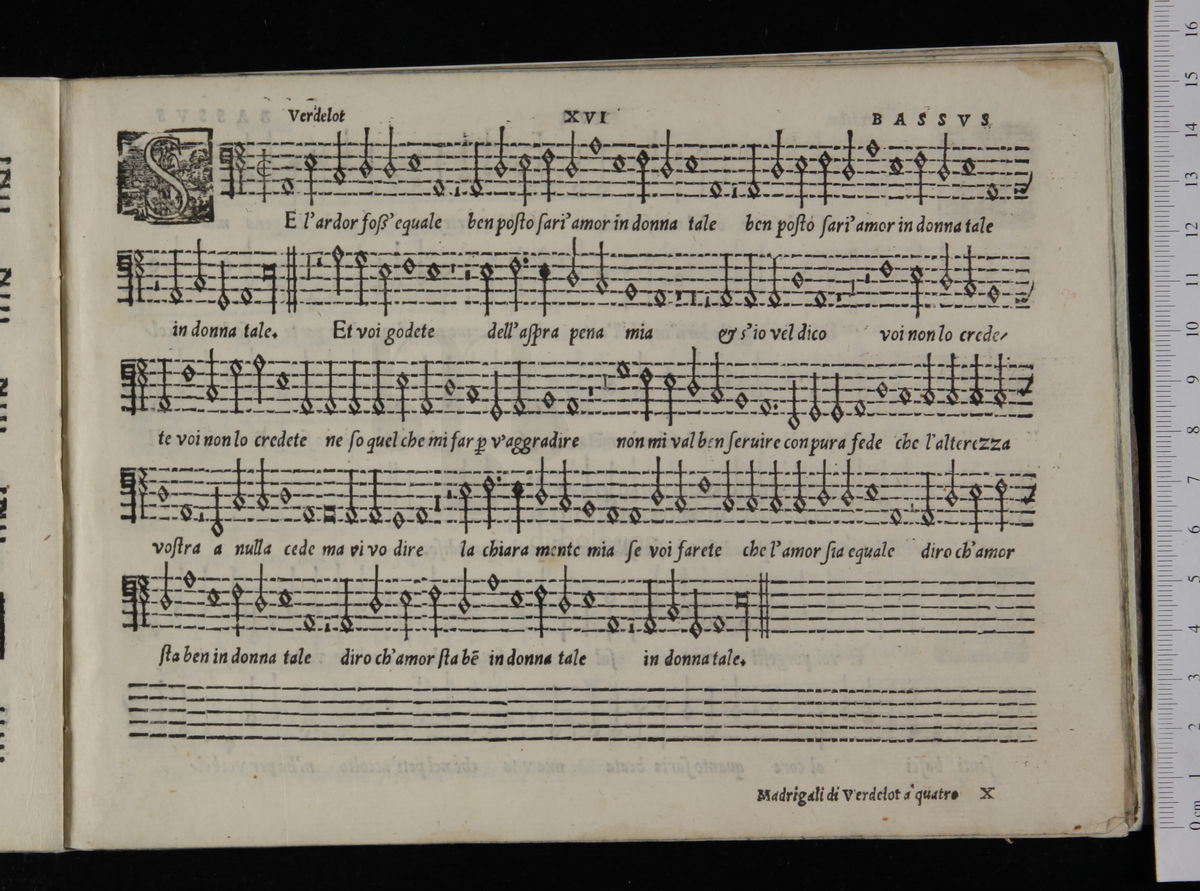 Verdelot XVI BASSVS
SE l'ardor foſs' equale ben poſto ſari' amor in donna tale ben poſto ſari' amor in donna tale
in donna tale. Et voi godete dell'aſpra pena mia & s'io vel dico voi non lo crede/
te voi non lo credete ne ſo quel che mi far ꝑ v'aggradire non mi val ben ſeruire con pura fede che l'alterezza
voſtra a nulla cede ma vi vo dire la chiara mente mia ſe voi farete che l'amor ſia equale diro ch'amor
ſta ben in donna tale diro ch'amor ſta bē in donna tale in donna tale.
Madrigali di Verdelot a quatro X
16
15
14
13
12
11
10
9
8
7
6
5
4
3
2
1
0 cm